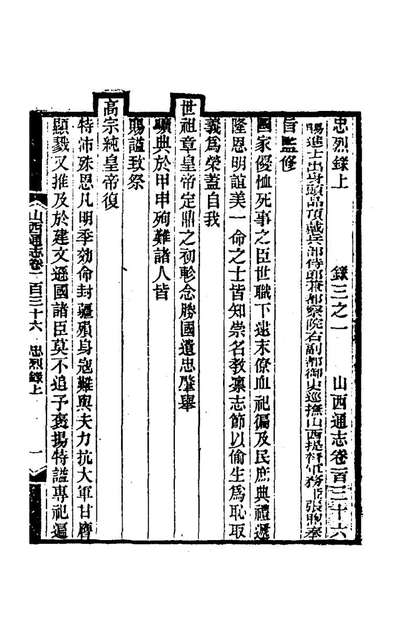 忠烈錄上 錄三之一 山西通志卷一百三十六
賜進士出身頭品頂戴兵部侍郎兼都察院右副都御史巡撫山西提督軍務臣張煦奉
旨監修
國家優恤死事之臣世職下逮末僚血祀徧及民庶典禮遞
隆恩明誼美一命之士皆知崇名教稟志節以偷生爲恥取
義爲榮蓋自我
世祖章皇帝定鼎之初軫念勝國遺忠肇舉
曠典於甲申殉難諸人皆
賜謚致祭
高宗純皇帝復
特沛殊恩凡明季效命封疆殞身寇難與夫力抗大軍甘膺
顯戮又推及於建文遜國諸臣莫不追予褒揚特謚專祀通
山西通志卷一百三十六 忠烈錄上 一